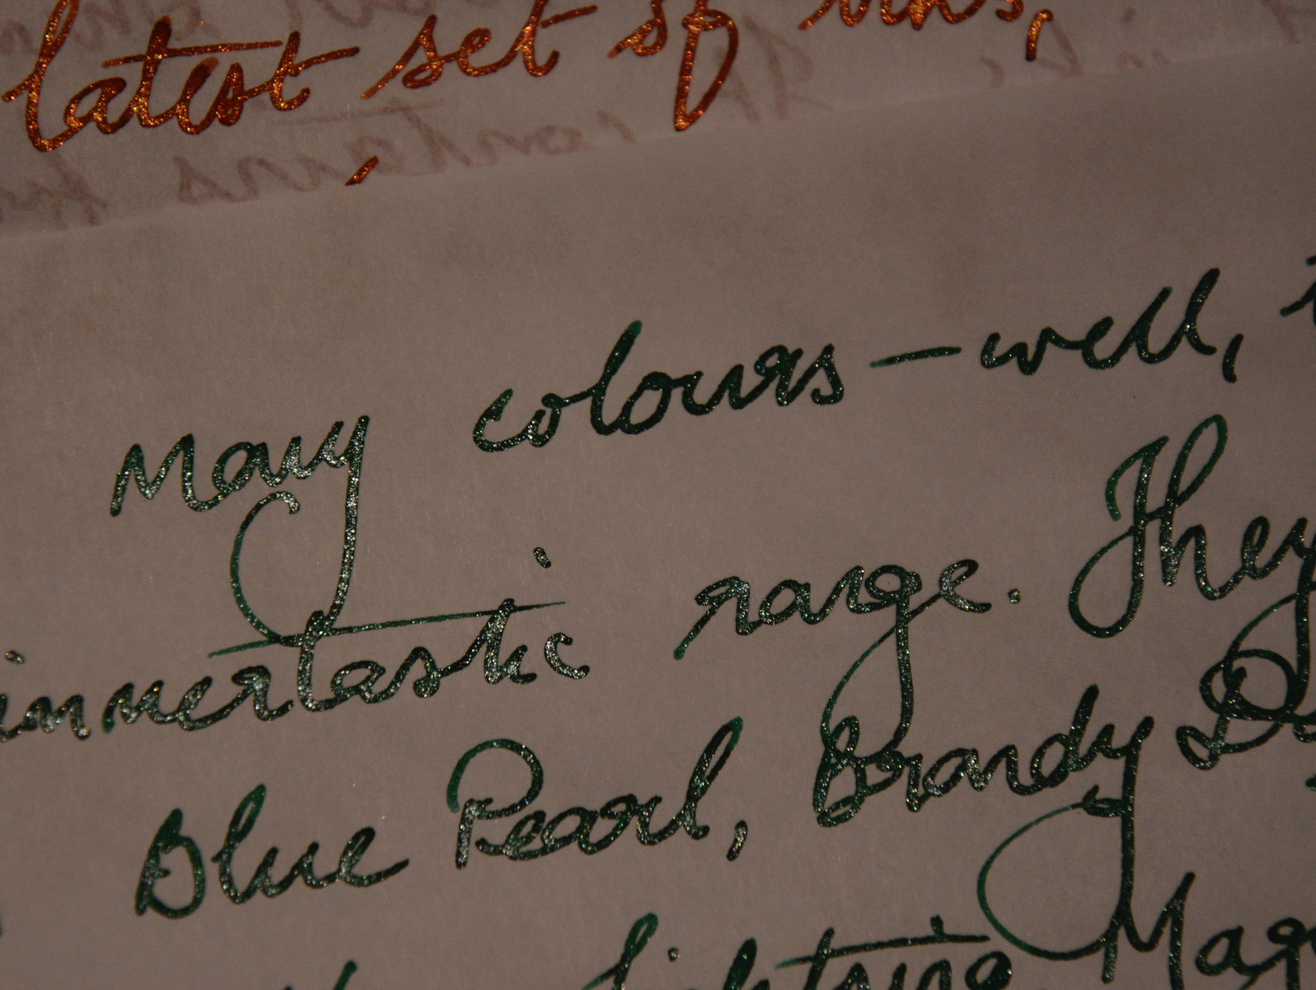 latest set of inks,
Many colours – well,
immertastic range. They
Blue Pearl, Brandy
lightning Mag